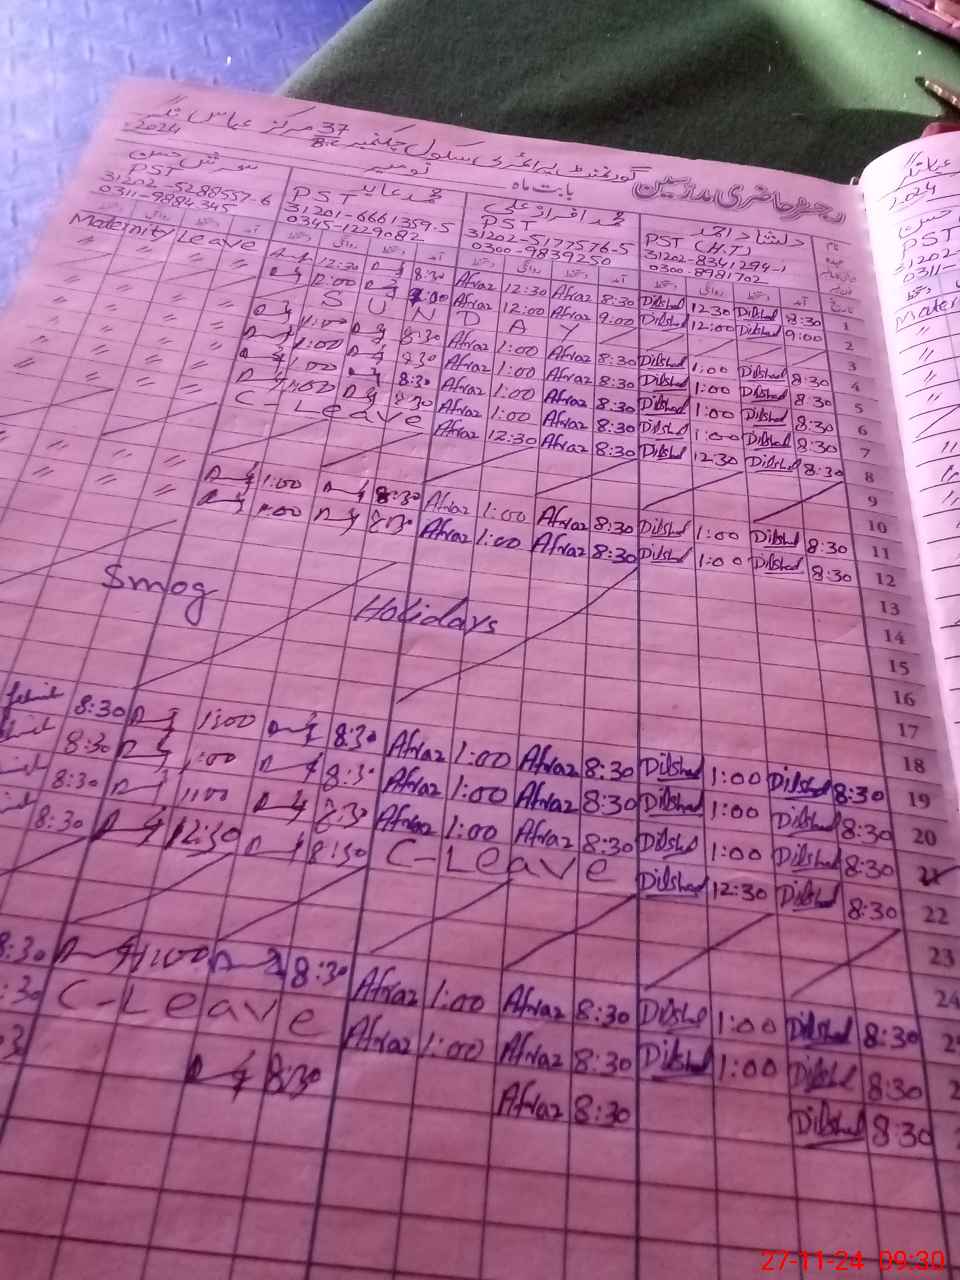 رجسٹر حاضری مدرسین گورنمنٹ پرائمری سکول چک نمبر 37 مرکز عباس نگر
بابت ماہ نومبر 2024
دلشاد احمد
PST (H.T)
31202-8341294-1
0300-8981702
محمد افراز علی
PST
31202-5177576-5
0300-9839250
محمد عابد
PST
31201-6661359-5
0345-1229082
PST
31202-5288557-6
0311-9884345
Maternity Leave
12:30 8:30 Afraz 12:30 Afraz 8:30 Dilshad 12:30 Dilshad 8:30 1
12:00 9:00 Afraz 12:00 Afraz 9:00 Dilshad 12:00 Dilshad 9:00 2
S U N D A Y 3
1:00 8:30 Afraz 1:00 Afraz 8:30 Dilshad 1:00 Dilshad 8:30 4
1:00 8:30 Afraz 1:00 Afraz 8:30 Dilshad 1:00 Dilshad 8:30 5
1:00 8:30 Afraz 1:00 Afraz 8:30 Dilshad 1:00 Dilshad 8:30 6
1:00 8:30 Afraz 1:00 Afraz 8:30 Dilshad 1:00 Dilshad 8:30 7
C-Leave Afraz 12:30 Afraz 8:30 Dilshad 12:30 Dilshad 8:30 8
9
10
1:00 8:30 Afraz 1:00 Afraz 8:30 Dilshad 1:00 Dilshad 8:30 11
1:00 8:30 Afraz 1:00 Afraz 8:30 Dilshad 1:00 Dilshad 8:30 12
13
Smog Holidays 14
15
16
17
18
8:30 1:00 8:30 Afraz 1:00 Afraz 8:30 Dilshad 1:00 Dilshad 8:30 19
8:30 1:00 8:30 Afraz 1:00 Afraz 8:30 Dilshad 1:00 Dilshad 8:30 20
8:30 1:00 8:30 Afraz 1:00 Afraz 8:30 Dilshad 1:00 Dilshad 8:30 21
8:30 12:30 8:30 C-Leave Dilshad 12:30 Dilshad 8:30 22
23
24
8:30 1:00 8:30 Afraz 1:00 Afraz 8:30 Dilshad 1:00 Dilshad 8:30
:30 C-Leave Afraz 1:00 Afraz 8:30 Dilshad 1:00 Dilshad 8:30
8:30 Afraz 8:30 Dilshad 8:30
2024
PST
31202
0311-
Mater
27-11-24 09:30